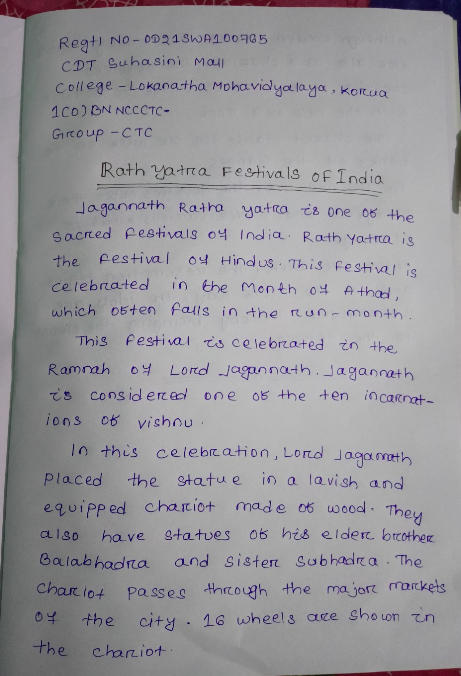 Regtl NO - OD21SWA100765
CDT Suhasini Mall
College - Lokanatha Mohavidyalaya, Korua
1(O) BN NCCCTC-
Group - CTC
Rath Yatra Festivals of India
Jagannath Ratha yatra is one of the
sacred festivals of India. Rath Yatra is
the festival of Hindus. This festival is
celebrated in the Month of Athad,
which often falls in the run-month.
This festival is celebrated in the
Ramnah of Lord Jagannath. Jagannath
is considered one of the ten incarnat-
ions of vishnu.
In this celebration, Lord Jagannath
placed the statue in a lavish and
equipped chariot made of wood. They
also have statues of his elder brother
Balabhadra and sister Subhadra. The
chariot passes through the major markets
of the city. 16 wheels are shown in
the chariot.